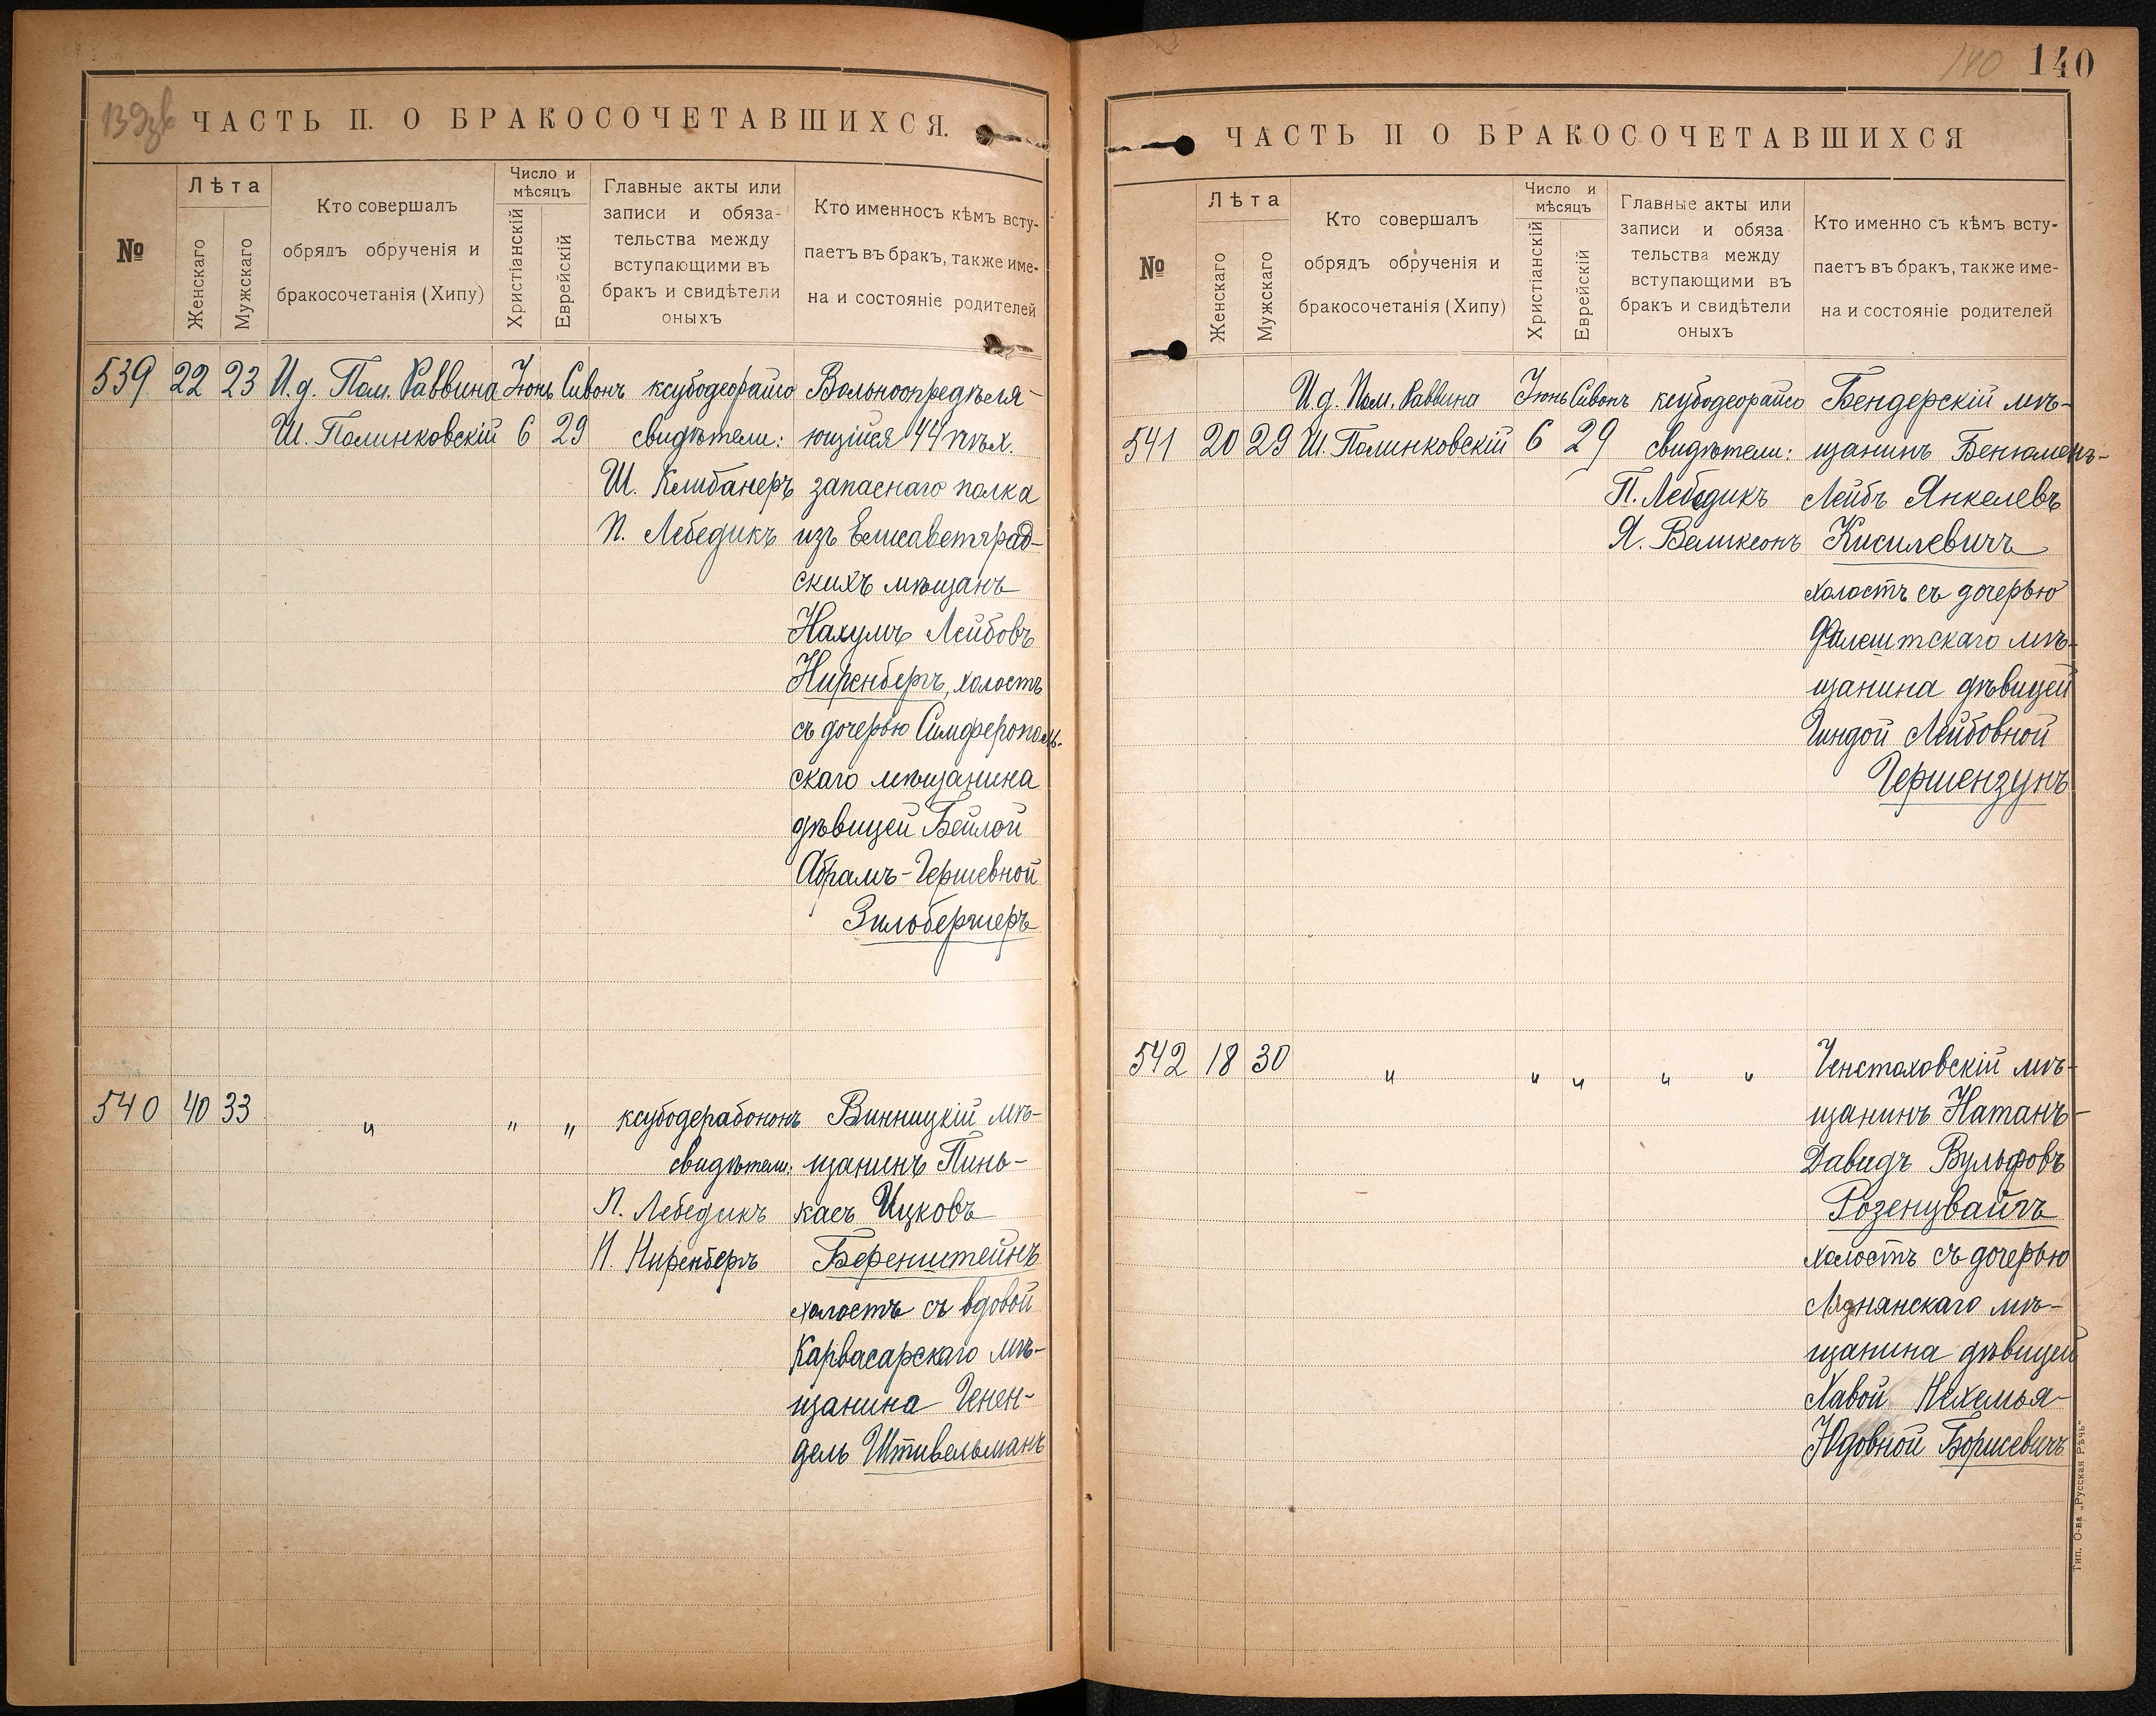 ЧАСТЬ II. О БРАКОСОЧЕТАВШИХСЯ.
№
Лѣта
Женскаго
Мужскаго
Кто совершалъ
обрядъ обрученія и
бракосочетанія (Хипу)
Число и
мѣсяцъ
Христіанскій
Еврейскій
Главные акты или
записи и обяза-
тельства между
вступающими въ
бракъ и свидѣтели
оныхъ
Кто именносъ кѣмъ всту-
паетъ въ бракъ, также име-
на и состояніе родителей
539 22 23 И.д. Пом. Раввина Іюнь Сивонъ ксубодеорайсо Вольноопредѣля-
Ш. Полинковскій 6 29 свидѣтели: ющійся 44 пѣх.
Ш. Клибанеръ запаснаго полка
П. Лебедикъ изъ Елисаветград-
скихъ мѣщанъ
Нахумъ Лейбовъ
Ниренбергъ, холостъ
съ дочерью Симферополь-
скаго мѣщанина
дѣвицей Бейлой
Абрамъ-Гершевной
Зильбергеръ
540 40 33 " " " ксубодерабононъ Винницкій мѣ-
свидѣтели: щанинъ Пинь-
П. Лебедикъ касъ Ицковъ
Н. Ниренбергъ Беренштейнъ
холостъ съ вдовой
Карвасарскаго мѣ-
щанина Генен-
дель Штивельманъ
140 140
ЧАСТЬ II О БРАКОСОЧЕТАВШИХСЯ
№
Лѣта
Женскаго
Мужскаго
Кто совершалъ
обрядъ обрученія и
бракосочетанія (Хипу)
Число и
мѣсяцъ
Христіанскій
Еврейскій
Главные акты или
записи и обяза
тельства между
вступающими въ
бракъ и свидѣтели
оныхъ
Кто именно съ кѣмъ всту-
паетъ въ бракъ, также име-
на и состояніе родителей
И.д. Пом. Раввина Іюнь Сивонъ ксубодеорайсо Бендерскій мѣ-
541 20 29 Ш. Полинковскій 6 29 свидѣтели: щанинъ Бенюменъ-
П. Лебедикъ Лейбъ Янкелевъ
Я. Великсонъ Кисилевичъ
холостъ съ дочерью
Фалештскаго мѣ-
щанина дѣвицей
Гиндой Лейбовной
Гершензунъ
542 18 30 " " " " " Ченстоховскій мѣ-
щанинъ Натанъ-
Давидъ Вульфовъ
Розенцвайгъ
холостъ съ дочерью
мѣ-
щанина дѣвицей
Хавой Нехемья-
Юдовной Борисевичъ
Тип. О-ва „Русская Рѣчь"